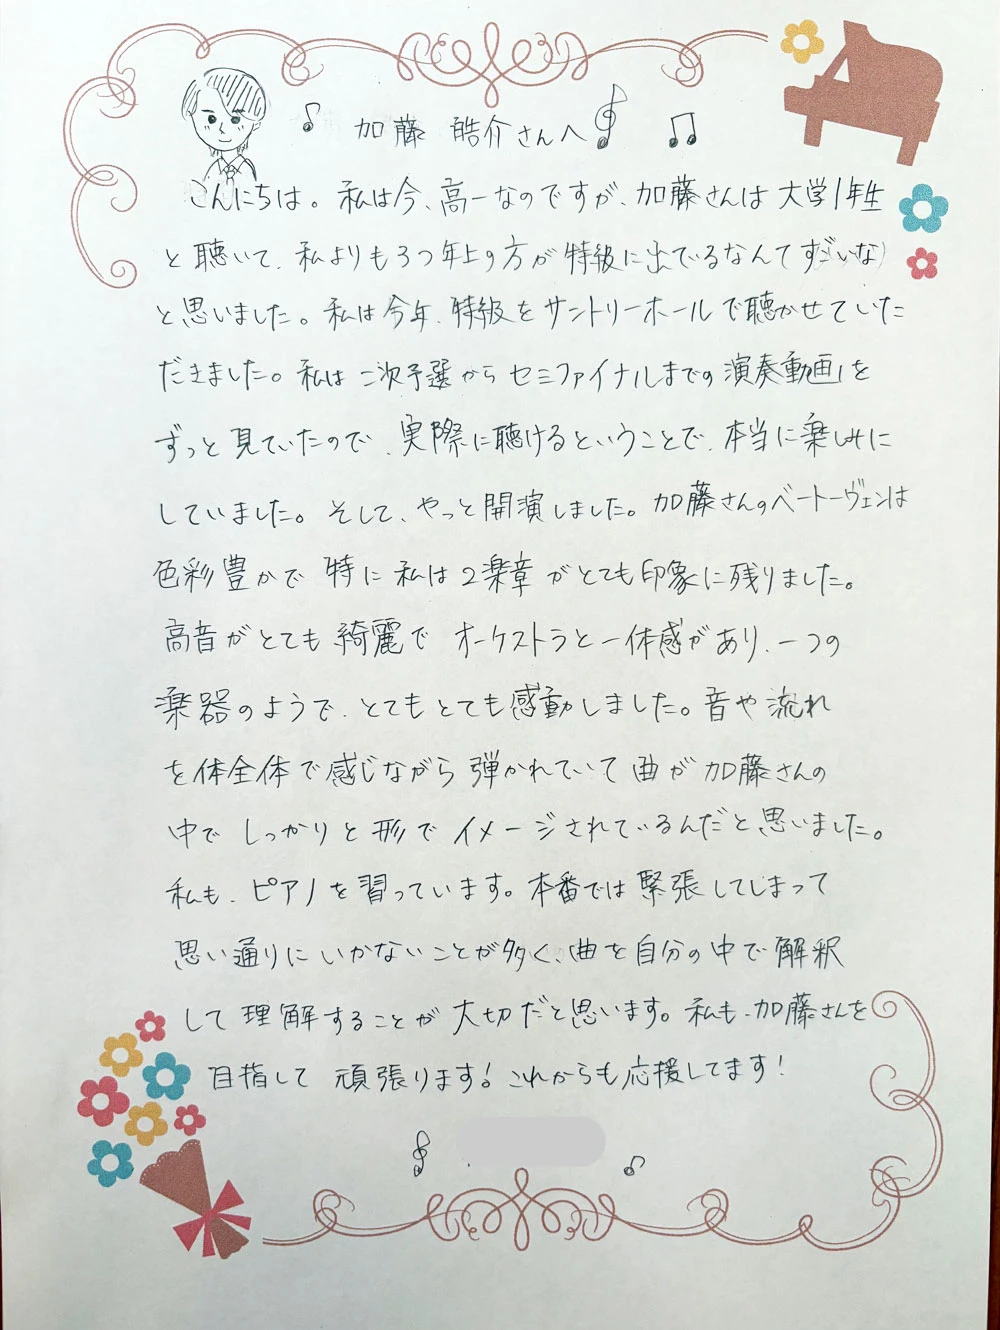 加藤 皓介さんへ
こんにちは。私は今、高一なのですが、加藤さんは大学1年生
と聴いて、私よりも3つ年上の方が特級に出でるなんてすごいな
と思いました。私は今年、特級をサントリーホールで聴かせていた
だきました。私は二次予選からセミファイナルまでの演奏動画を
ずっと見ていたので、実際に聴けるということで、本当に楽しみに
していました。そして、やっと開演しました。加藤さんのベートーヴェンは
色彩豊かで特に私は2楽章がとても印象に残りました。
高音がとても綺麗でオーケストラと一体感があり、一つの
楽器のようで、とてもとても感動しました。音や流れ
を体全体で感じながら弾かれていて曲が加藤さんの
中でしっかりと形でイメージされているんだと思いました。
私も、ピアノを習っています。本番では緊張してしまって
思い通りにいかないことが多く、曲を自分の中で解釈
して理解することが大切だと思います。私も、加藤さんを
目指して頑張ります!これからも応援してます!